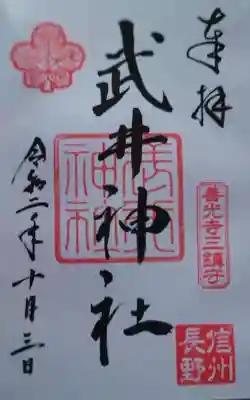 奉拝
善光寺三鎮守
信州
長野
武井神社
武井
神社
令和二年十月三日